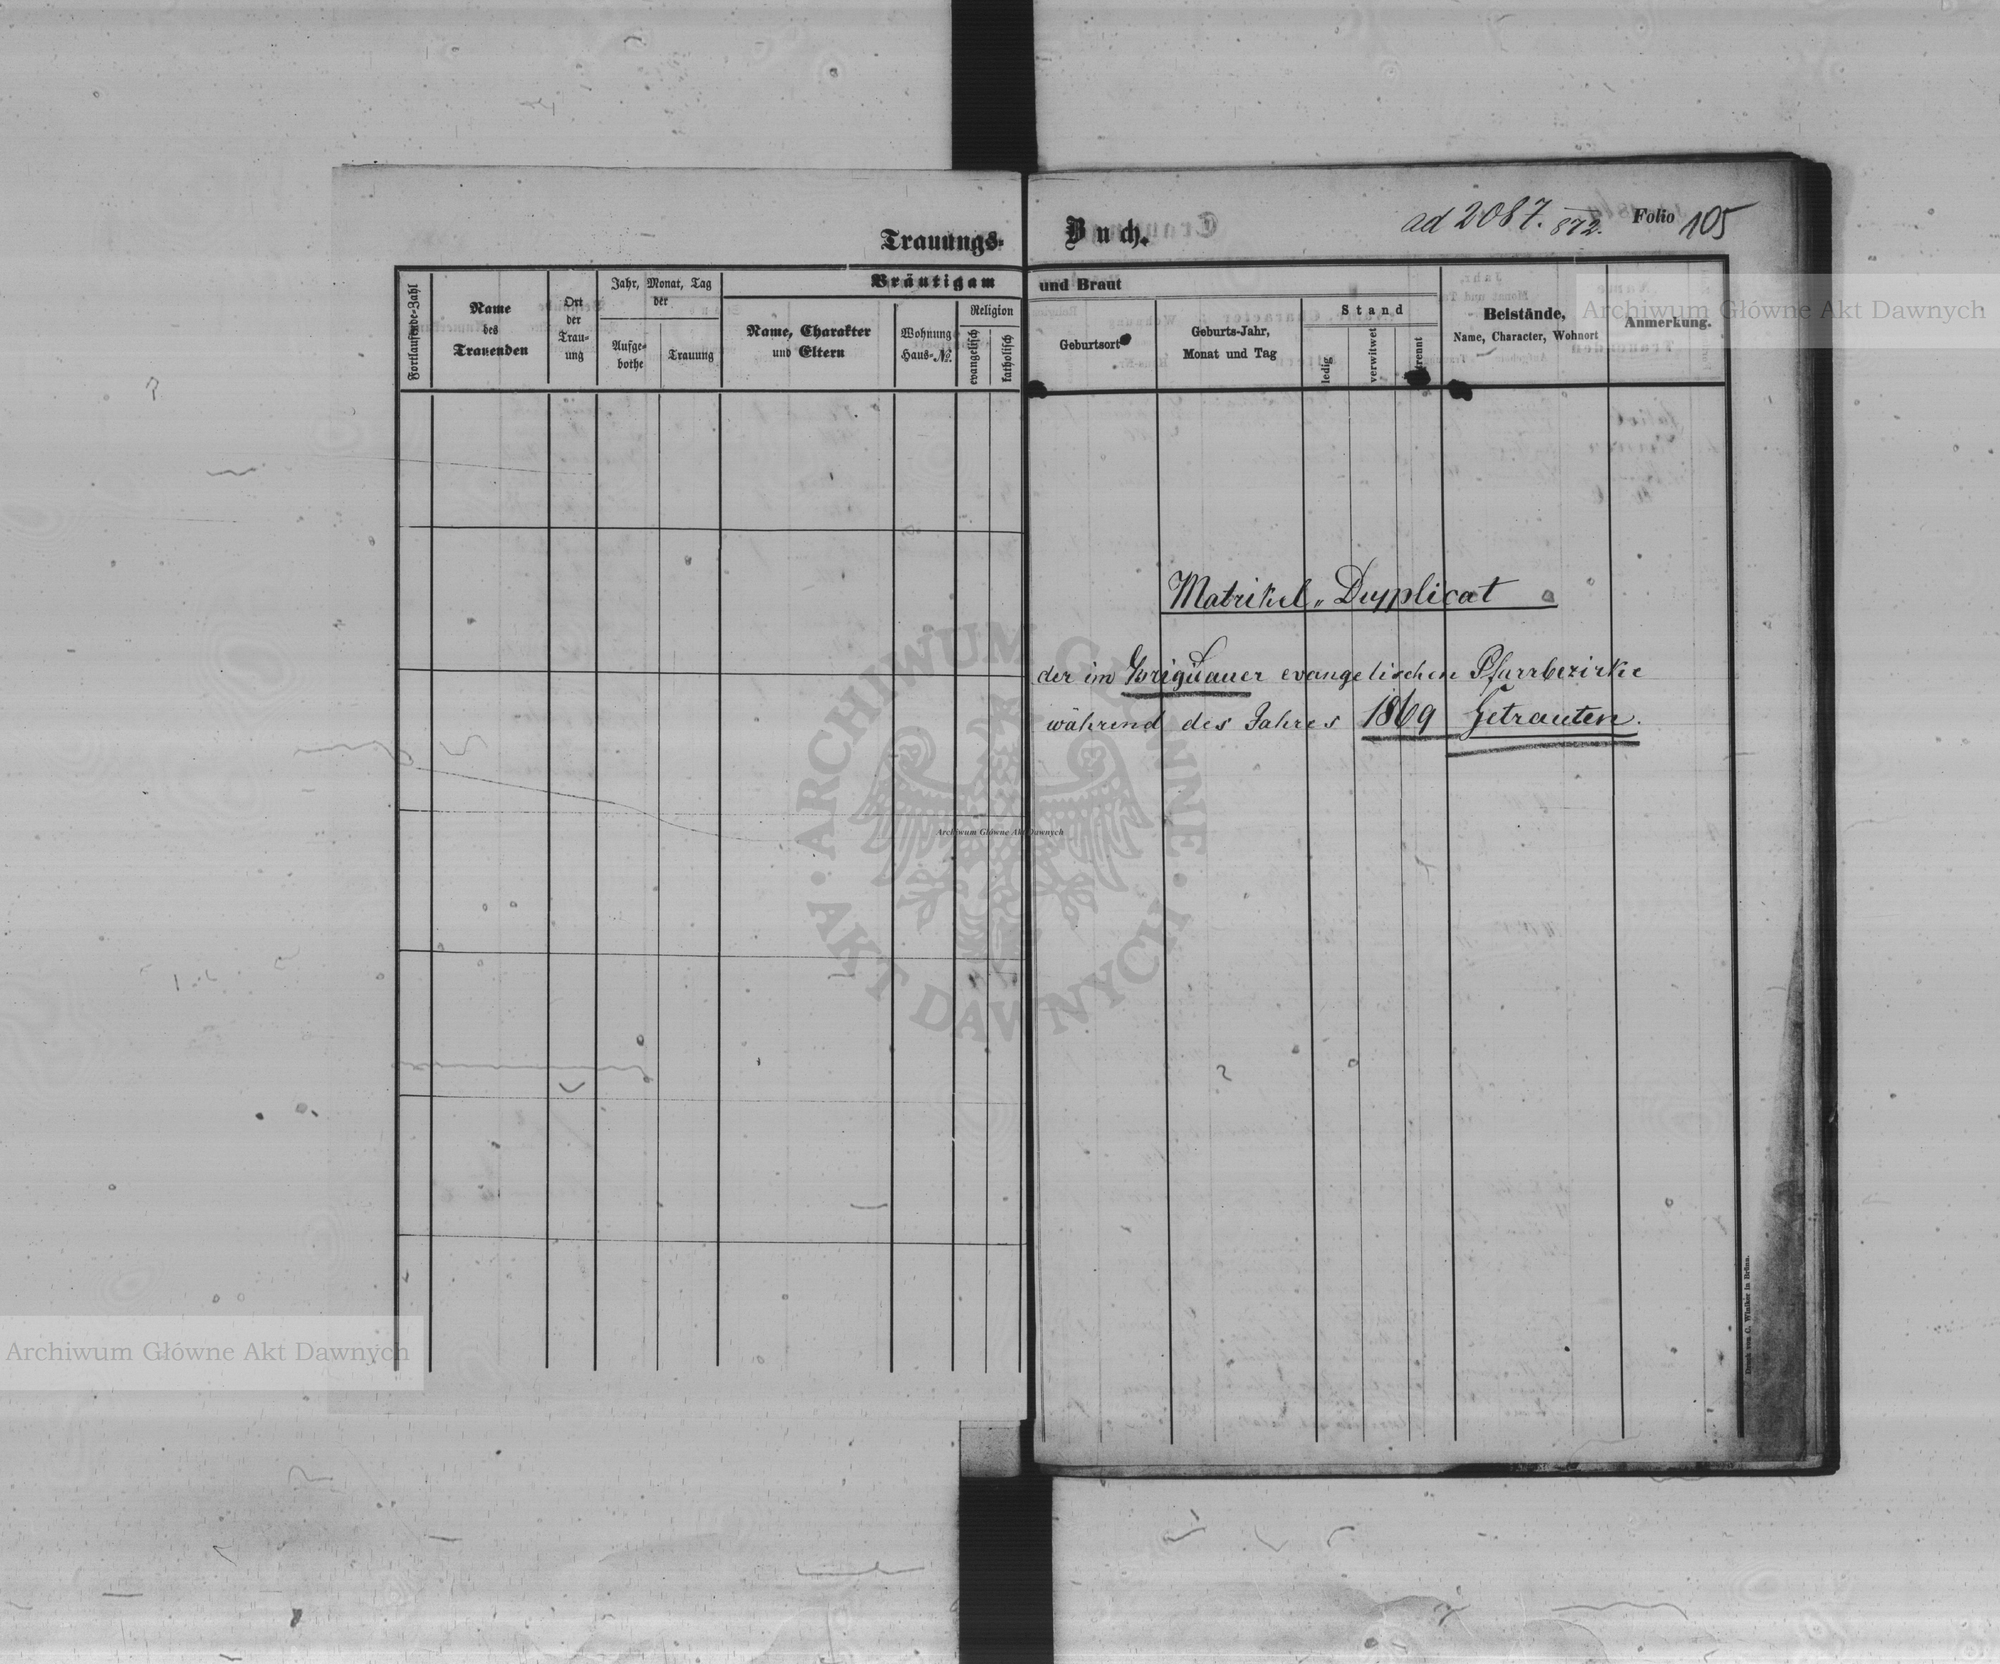 Trauungs-Buch.
ad 2087. 872. Folio 105
Fortlaufende-Zahl
Name
des
Trauenden
Ort
der
Trau-
ung
Jahr, Monat, Tag
der
Aufge-
bothe
Trauung
Bräutigam und Braut
Name, Charakter
und Eltern
Wohnung
Haus-№
Religion
evangelisch
katholisch
Geburtsort
Geburts-Jahr,
Monat und Tag
Stand
ledig
verwitwet
Beistände,
Name, Character, Wohnort
Anmerkung.
Matrikel„ Dupplicat
der im evangelischen Pfarrbezirke
während des Jahres 1869 Getrauten.
Druck von C. Winiker in Brünn.
Archiwum Główne Akt Dawnych
ARCHIWUM GŁÓWNE AKT DAWNYCH
Archiwum Główne Akt Dawnych
Archiwum Główne Akt Dawnych